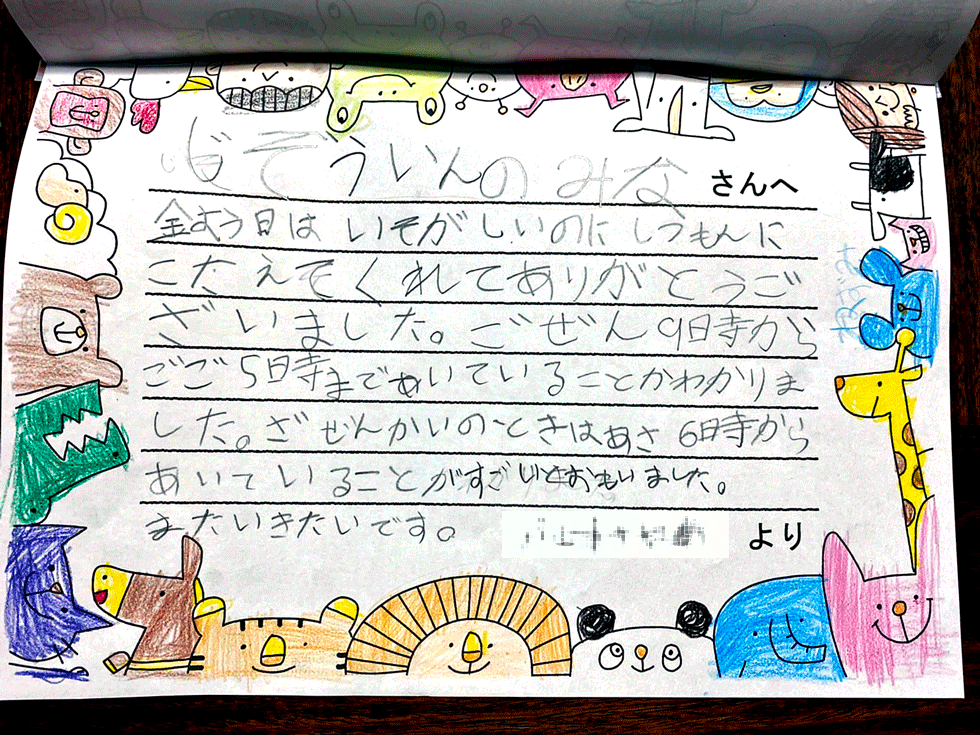 じぞういんのみな さんへ
金よう日は いそがしいのに しつもんに
こたえてくれてありがとうご
ざいました。ごぜん9時から
ごご5時まであいていることかわかりま
した。ざぜんかいのときはあさ6時から
あいていることがすごいとおもいました。
またいきたいです。 より